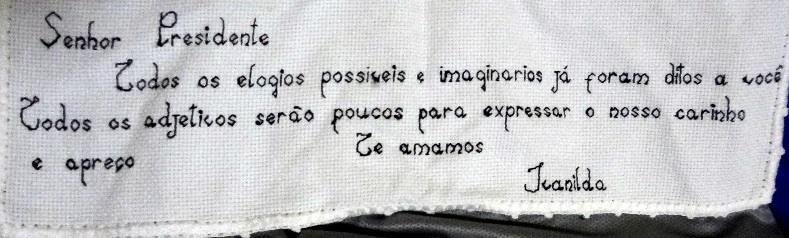 Senhor Presidente
Todos os elogios possiveis e imaginarios já foram ditos a você
Todos os adjetivos serão poucos para expressar o nosso carinho
e apreço
Te amamos
Ivanilda